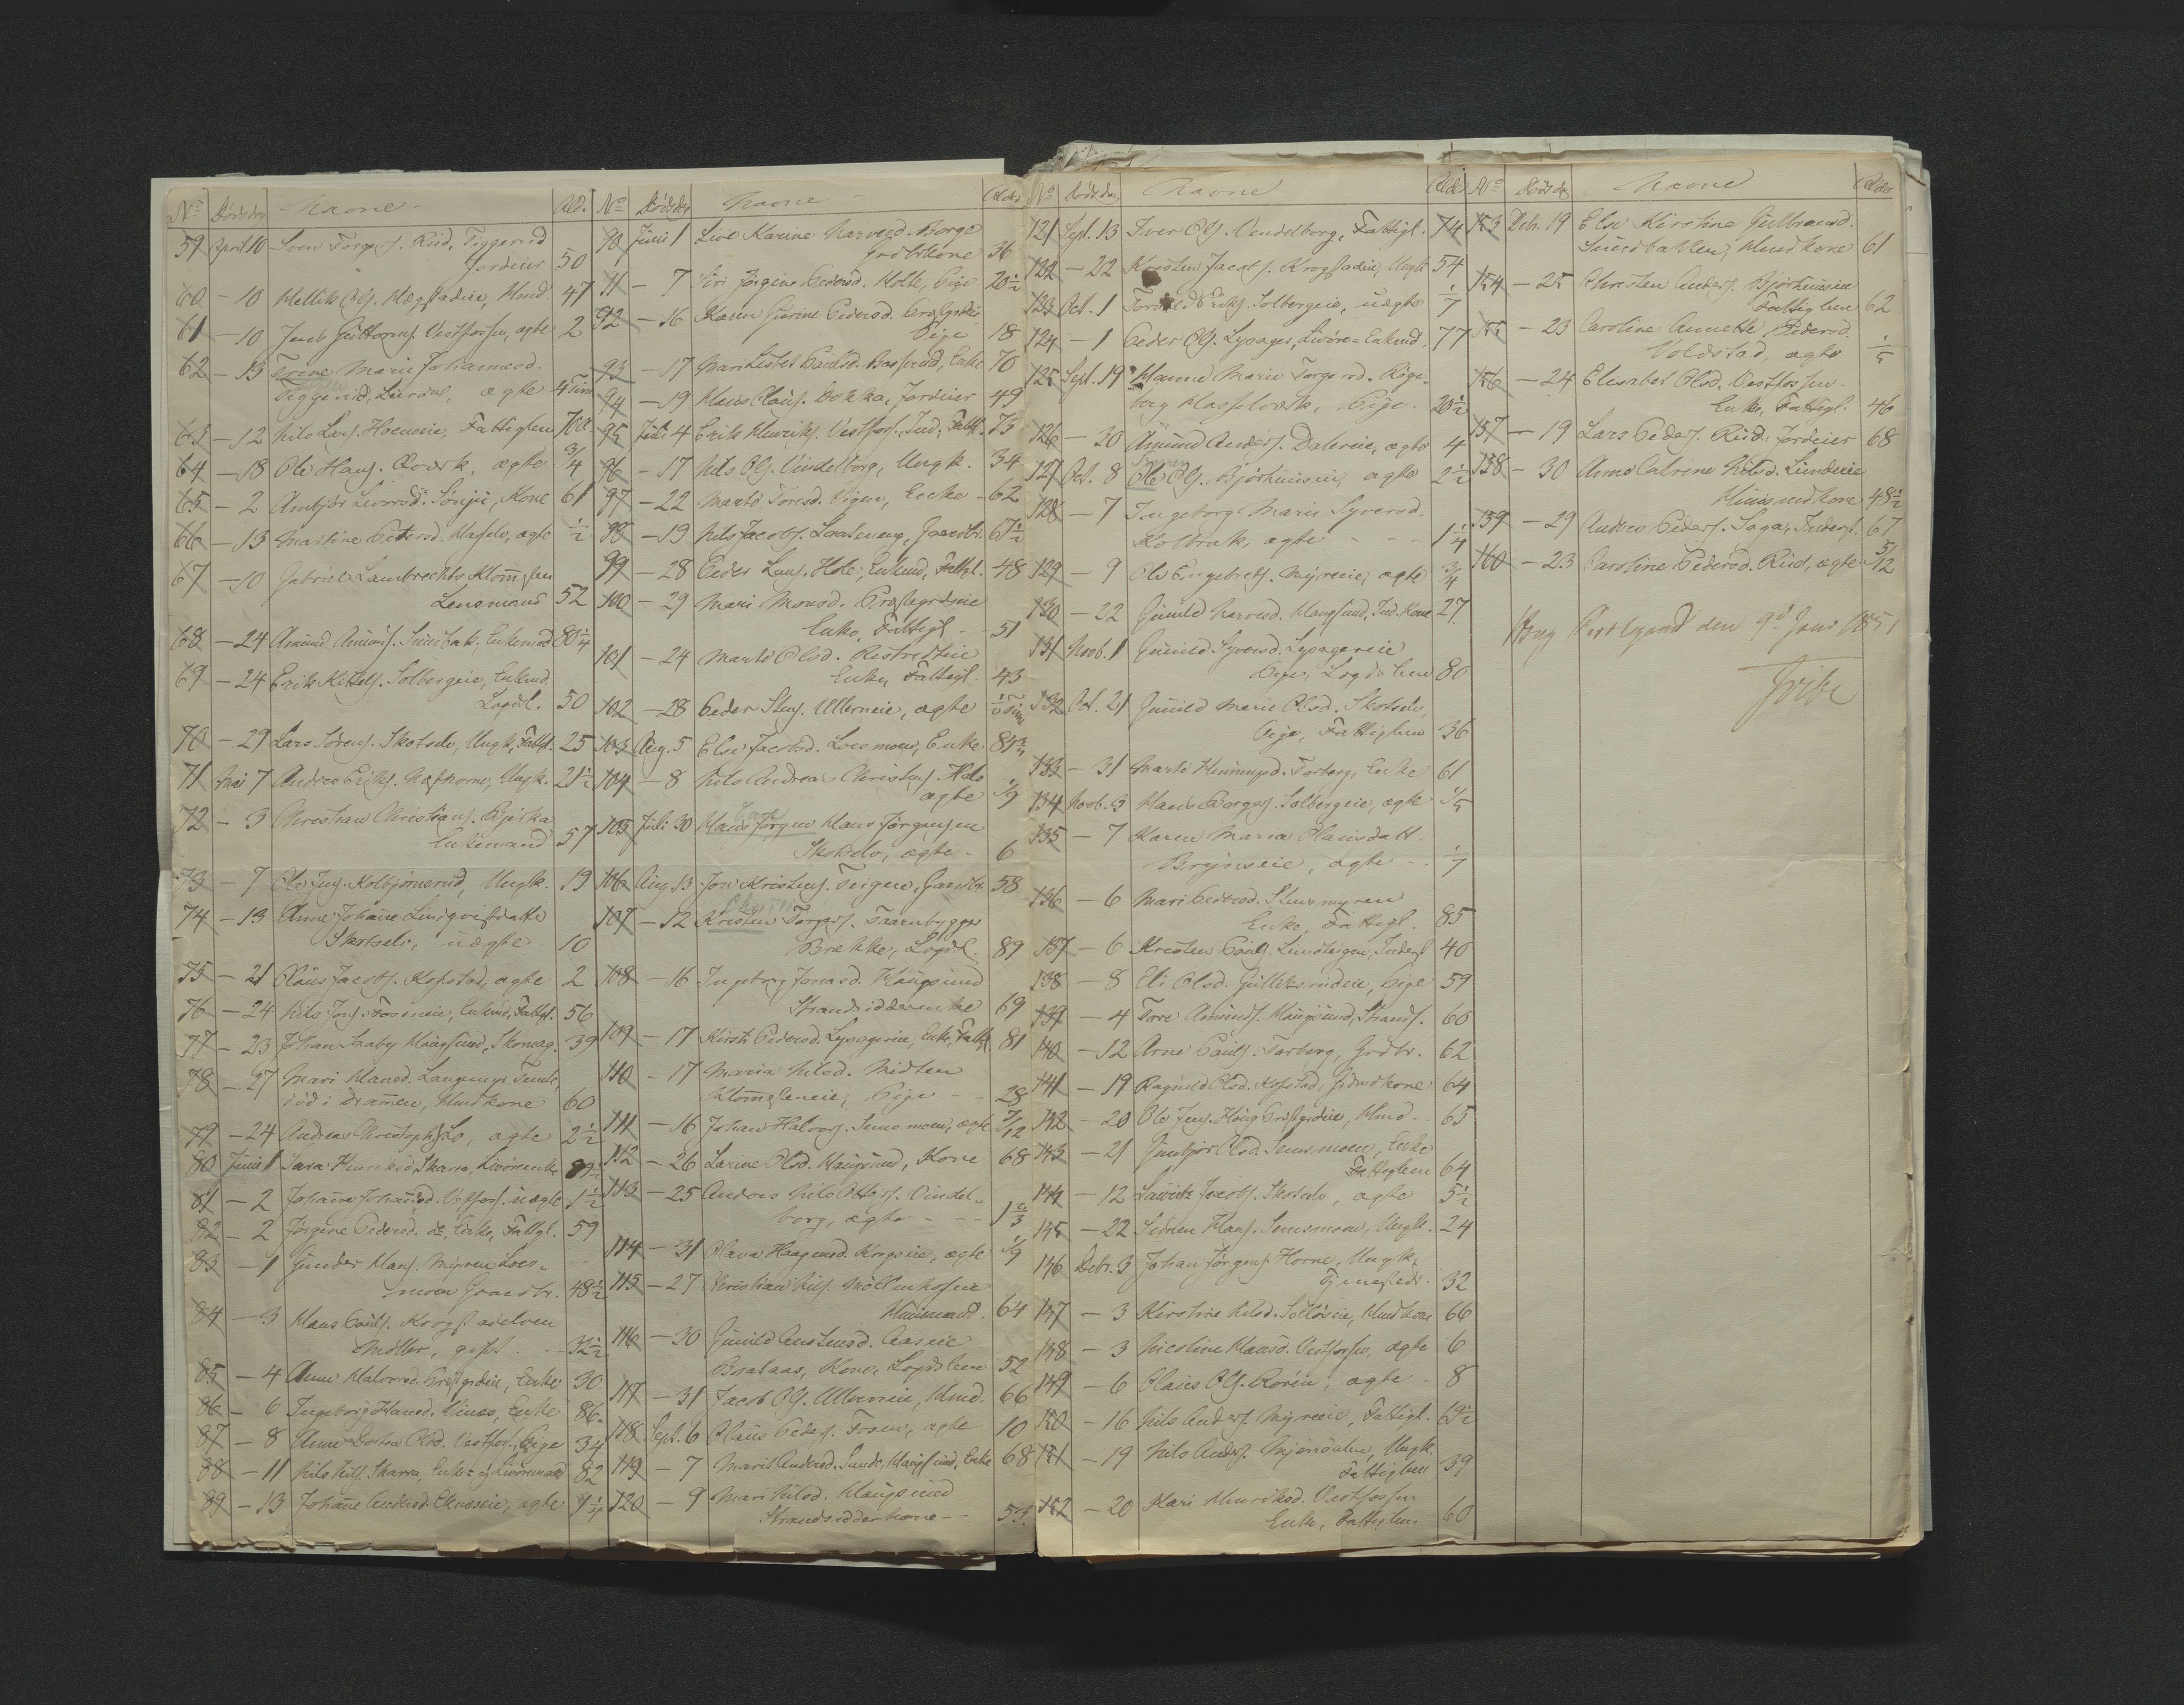 No Dödsdag Navne Ald.
59 April 10 Sven Torgers. Riid, Tiggerud
Jordeier 50
60 - 10 Mellik Ols. Mægstadeie, Kmd. 47
61 - 10 Jens Guttorms. Vestfossen, ægte 2
62 - 13 Trine Marie Johannesd.
Tiggerud, Leerdus, ægte 4 Tim
63 - 12 Nils Lars. Hoeneeie, Fattiglem 70
64 - 18 Ole Hans. Qværk, ægte 3/4
65 - 2 Ambjør Iversd. Sørbye, Kone 61
66 - 13 Martine Pedersd. Hassel, ægte 1/2
67 - 10 Gabriel Lambrechts Klommsten
Lensmand 52
68 - 24 Amund Amunds. Sundbak, Enkemd 80 1/4
69 - 24 Erik Kittels. Solbergeie, Enkmd.
Lægdl. 50
70 - 29 Lars Sörens. Skotselv, Ungk. Fattgl. 25
71 Mai 7 Andreas Eriks. Næshorne, Ungk. 21 1/2
72 - 3 Christian Christians. Bjerka
Enkemand 57
73 - 7 Ole Jens. Kolbjörnsrud, Ungk. 19
74 - 13 Anne Johanne Lindqvistdatte
Skotselv, uægte 10
75 - 21 Claus Jacobs. Kopstad, ægte 2
76 - 24 Nils Jons. Foseneie, Enkmd, Fattgl. 56
77 - 23 Johan Saaby Haugsund, Skomag. 39
78 - 27 Mari Hansd. Langerud
död i Drammen, Kmdkone 60
79 - 24 Andreas Christophs. Lo, ægte 2 1/2
80 Junii 1 Sara Henriksd. Skarra, Livöreenke 89
81 - 2 Johanne Johansd. Vestfoss. uægte 1 1/2
82 - 2 Jørgine Pedersd. do, Enke, Fattgl. 59
83 - 1 Gunder Hans. Myren Loes-
moen Gaardbr. 48 1/2
84 - 3 Hans Pauls. Krogstadelven
Møller, gift 32 1/2
85 - 4 Anne Halvorsd. Præstgrdeie, Enke 30
86 - 6 Ingeborg Hansd. Vinæs, Enke 86
87 - 8 Anne Dortea Olsd. Vestfos. Pige 34
88 - 11 Nils Nils. Skarra, Enke- og Livöremand 82
89 - 13 Johanne Andersd. Ekneseie, ægte
No Dödsdag Navne Alder
90 Junii 1 Live Karine Narvesd. Borge
Grdbrkone 36
91 - 7 Siri Jørgine Pedersd. Holte, Pige 20 1/2
92 - 16 Karen Gurine Pedersd. Præstgrdeie
Pige 18
93 - 17 Mari Lisbet Paulsd. Basserud, Enke 70
94 - 19 Hans Claus. Dokka, Jordeier 49
95 Juli 4 Erik Henriks. Vestfos., Ind. Fattgl. 75
96 - 17 Nils Ols. Vindelborg, Ungk. 34
97 - 22 Marte Toresd. Vigen, Enke 62
98 - 19 Nils Jacobs. Laaseneng, Gaardbr. 67 1/2
99 - 28 Peder Lars. Hole, Enkmd, Fattgl. 48
100 - 29 Mari Monsd. Præstegrdseie
Enke, Fattigl. 51
101 - 24 Marte Olsd. Ristvedteie
Enke, Fattigl. 43
102 - 28 Peder Stens. Ullerneie, ægte
103 Aug. 5 Else Jacobsd. Loesmoen, Enke 85
104 - 8 Nils Andreas Christens. Hals
ægte 1/9
105 Juli 30 Hans Jörgen Hans Jörgensen
Skotselv, ægte 6
106 Aug. 13 Jon Kristens. Teigen, Gaardbr. 58
107 - 12 Kristen Torgers. Taarnbygger
Brekke, Lægdl. 89
108 - 16 Ingeborg Jonasd. Haugsund
Strandsidderenke 69
109 - 17 Kirsti Pedersd. Lysagereie, Enke, Fattgl 81
110 - 17 Maria Nilsd. Midten
Klommesteneie, Pige 28
111 - 16 Johan Halvors. Semsmoen, ægte 7/12
112 - 26 Larine Olsd. Haugsund, Kone 68
113 - 25 Anders Nils Otters. Vindel-
borg, ægte 1 2/3
114 - 31 Olava Haagensd. Krogseie, ægte 1/9
115 - 27 Christian Nils. Möllenhofene
Huusmand 64
116 - 30 Gunild Anstensd. Aaseie
Brataas, Kone, Lægdslem 52
117 - 31 Jacob Ols. Ullerneie, Kmd. 66
118 Sept. 6 Claus Peders. Fosen, ægte 10
119 - 7 Marit Andersd. Sande, Haugsund, Enke 68
120 - 9 Mari Nilsd. Haugsund
Strandsidderkone 53
No Dödsdag Navne Alder
121 Sept. 13 Iver Ols. Vendelborg, Fattigl. 74
122 - 22 Kristen Jacobs. Krogstadeie, Ungk 54
123 Oct. 1 Eriks. Solbergeie, uægte 1/7
124 - 1 Peder Ols. Lysager, Livöre- Enkmd. 77
125 Sept. 19 Hanne Marie Torgersd. Röge-
berg Hasselværk, Pige 20 1/2
126 - 30 Amund Anders. Dalereie, ægte 4
127 Oct. 8 Ole Ols. Björhuuseie, ægte 2 1/2
128 - 7 Ingeborg Marie Syversd.
Kolbræk, ægte 1 1/4
129 - 9 Ole Engebrets. Myreeie, ægte 3/4
130 - 22 Gunild Narvesd. Haugsund, Ind. Kone 27
131 Novb. 1 Gunild Syversd. Lysagereie
Pige, Lægdslem 80
132 Oct. 21 Gunild Marie Olsd. Skotselv
Pige, Fattiglem 36
133 - 31 Marte Hemmingsd. Torberg, Enke 61
134 Novb. 3 Hans Borges. Solbergeie, ægte 1/5
135 - 7 Karen Maria Clausdatt.
Brynseie, ægte 1/7
136 - 6 Mari Pedersd. Stensmyren
Enke, Fattigl. 85
137 - 6 Kristen Pauls. Semsteigen, Inderst 40
138 - 8 Eli Olsd. Gulliksrudeie, Pige 59
139 - 4 Tore Amunds. Haugsund, Strands. 60
140 - 12 Arne Pauls. Torberg, Grdbr. 62
141 - 19 Ragnild Olsd. Kopstad, Grdmdkone 64
142 - 20 Ole Jens. Haug Præstgrdeie, Kmd. 65
143 - 21 Gunbjør Olsd. Semsmoen, Enke
Fattiglem 64
144 - 12 Lauritz Jacobs. Skotselv, ægte 5 1/2
145 - 22 Simen Hans. Semsmoen, Ungk. 24
146 Debr. 3 Johan Jörgens. Horne, Ungk.
Tjenestedr. 32
147 - 3 Kirstine Nilsd. Solløseie, Kmdkone 66
148 - 3 Nicoline Hansd. Vestfossen, ægte 6
149 - 6 Claus Ols. Rorén, ægte 8
150 - 16 Nils Anders. Myreeie, Fattigl. 69 1/2
151 - 19 Nils Anders. Mjöndalen, Ungk.
Fattiglem 39
152 - 20 Kari Henriksd. Vestfossen
Enke, Fattiglem 60
No Dödsdag Navne Alder
153 Debr. 19 Else Kirstine Gulbrandsd.
Sundbakken, Kmdkone 61
154 - 25 Christen Anders. Björhuuseie
Fattiglem 62
155 - 23 Caroline Annette Pedersd.
Voldstad, ægte 1/5
156 - 24 Elisabet Olsd. Vestfossen
Enke, Fattigl. 46
157 - 19 Lars Peders. Riid, Jordeier 68
158 - 30 Anne Catrine Nilsd. Lundeeie
Huusmdkone 48 1/2
159 - 29 Anders Peders. Saga, Inderst. 67
160 - 23 Caroline Pedersd. Riid, ægte 5/12
Houg Præstegaard den 9d Janr 1851